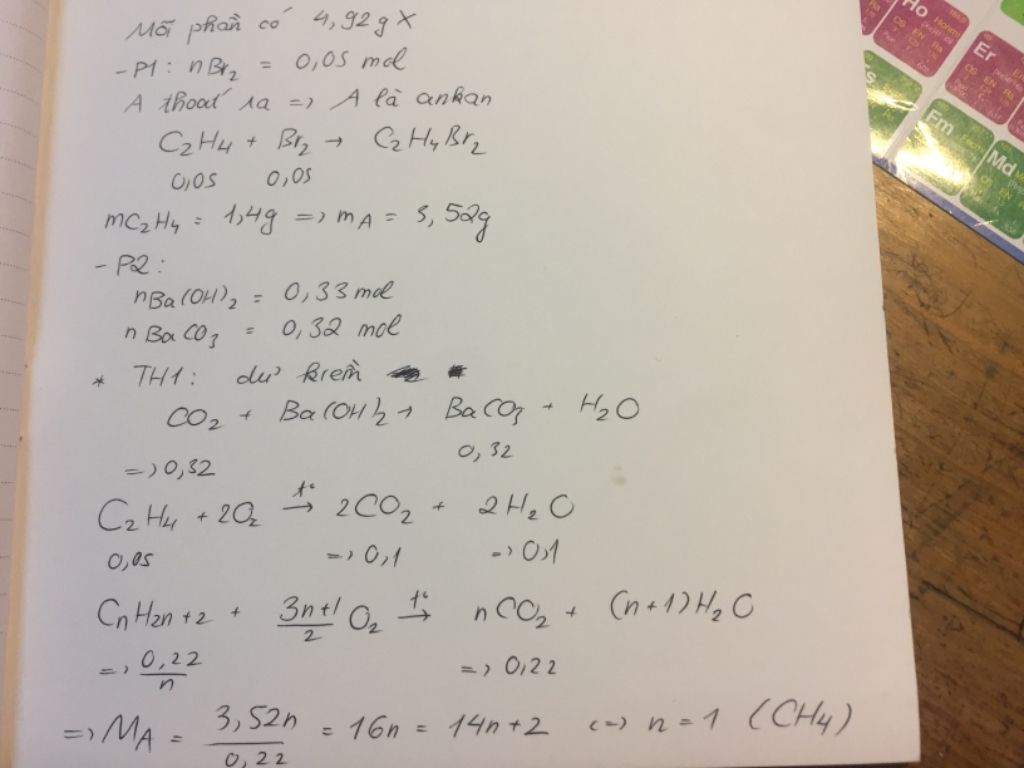 Mỗi phần có 4,92g X
-P1: nBr2 = 0,05 mol
A thoát ra => A là ankan
C2H4 + Br2 → C2H4Br2
0,05 0,05
mC2H4 = 1,4g => mA = 3,52g
-P2:
nBa(OH)2 = 0,33 mol
nBaCO3 = 0,32 mol
* TH1: dư kiềm
CO2 + Ba(OH)2 → BaCO3 + H2O
0,32
=> 0,32
C2H4 + 2O2 t° → 2CO2 + 2H2O
0,05 => 0,1 => 0,1
CnH2n+2 + (3n+1)/2 O2 t° → nCO2 + (n+1)H2O
=> 0,22/n => 0,22
=> MA = 3,52n/0,22 = 16n = 14n+2 <=> n = 1 (CH4)
Ho
Er
Es
Fm
Md